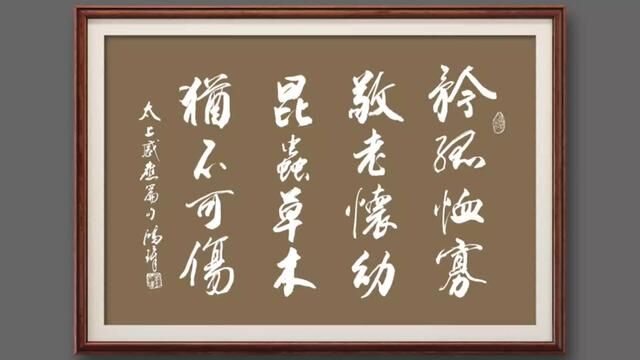 矜孤恤寡
敬老懷幼
昆蟲草木
猶不可傷
太上感應篇句